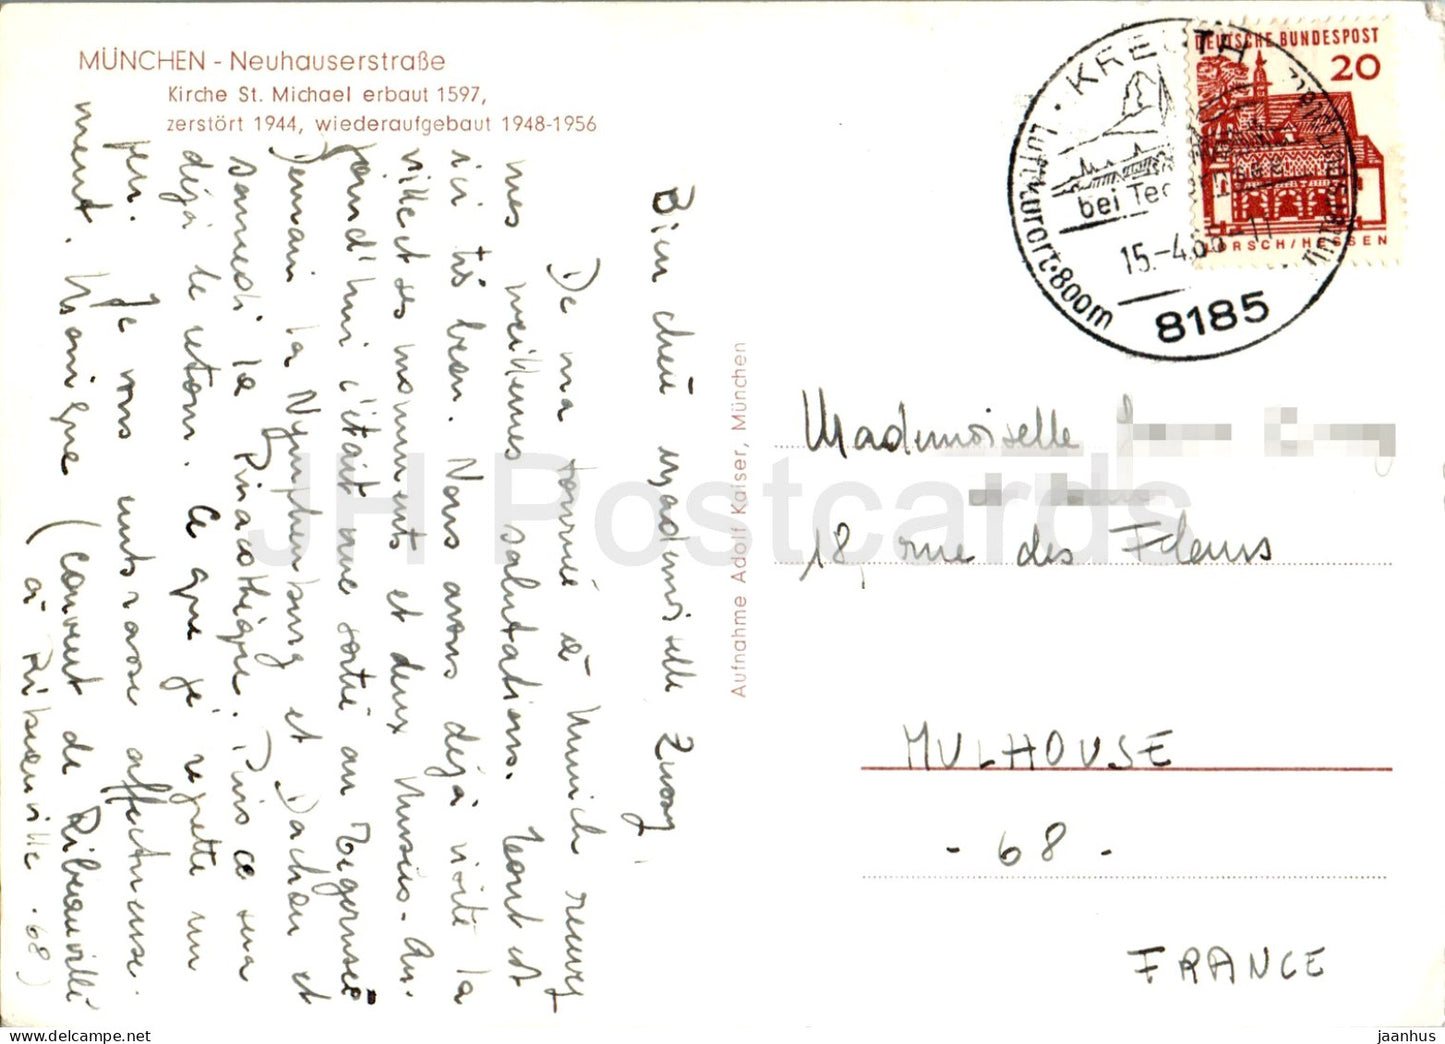 MÜNCHEN - Neuhauserstraße
Kirche St. Michael erbaut 1597,
zerstört 1944, wiederaufgebaut 1948-1956
Bien chère Mademoiselle Zussy,
De ma tournée à Munich recevez
mes meilleures salutations. Tout est
ici très beau. Nous avons déjà visité la
ville et ses monuments et deux Musées. Au-
jourd'hui c'était une sortie au Tegernsee
Demain la Nymphenburg et Dachau et
samedi la Pinacothèque. Puis ce sera
déjà le retour. Ce que je regrette un
peu. Je vous embrasse affectueuse-
ment. Monique (Couvent de Ribeauvillé
à Riba
ville . 68)
Aufnahme Adolf Kaiser, München
DEUTSCHE BUNDESPOST
20
LORSCH/HESSEN
KREUTH
bei Tegernsee
Luftkurort · 800m
15.-4.66-11
8185
Mademoiselle
18, rue des Fleurs
MULHOUSE
- 68 -
FRANCE
JH Postcards
jaanhus